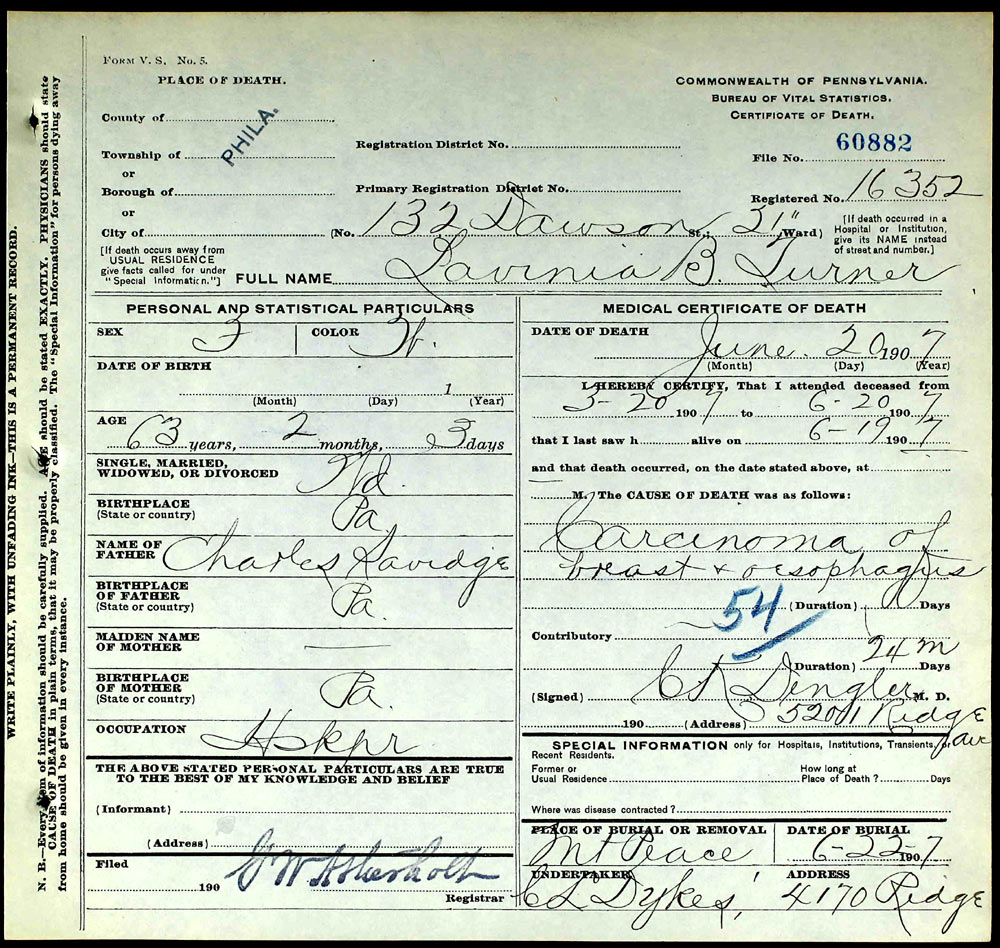 FORM V. S. No. 5.
PLACE OF DEATH.
County of
PHILA.
Township of
or
Borough of
or
City of
COMMONWEALTH OF PENNSYLVANIA.
BUREAU OF VITAL STATISTICS.
CERTIFICATE OF DEATH.
Registration District No.
File No. 60882
Primary Registration District No.
Registered No. 16352
(No. 132 Dawson St.; 21" Ward)
[If death occurred in a
Hospital or Institution,
give its NAME instead
of street and number.]
[If death occurs away from
USUAL RESIDENCE
give facts called for under
"Special Information."]
FULL NAME Lavinia B. Turner
PERSONAL AND STATISTICAL PARTICULARS
SEX F
COLOR W.
DATE OF BIRTH
1
(Month) (Day) (Year)
AGE
63 years, 2 months, 3 days
SINGLE, MARRIED,
WIDOWED, OR DIVORCED Wd.
BIRTHPLACE
(State or country) Pa
NAME OF
FATHER Charles Davidge
BIRTHPLACE
OF FATHER
(State or country) Pa.
MAIDEN NAME
OF MOTHER
BIRTHPLACE
OF MOTHER
(State or country) Pa.
OCCUPATION Hskpr
THE ABOVE STATED PERSONAL PARTICULARS ARE TRUE
TO THE BEST OF MY KNOWLEDGE AND BELIEF
(Informant)
(Address)
Filed
190
Registrar
MEDICAL CERTIFICATE OF DEATH
DATE OF DEATH
June. 20 1907
(Month) (Day) (Year)
I HEREBY CERTIFY, That I attended deceased from
3-20 1907 to 6-20 1907
that I last saw h alive on 6-19 1907
and that death occurred, on the date stated above, at
M. The CAUSE OF DEATH was as follows:
Carcinoma of
breast & oesophagus
54
(Duration) Days
Contributory
24 m
(Duration) Days
(Signed) Dengler M. D.
190 (Address) 5200 Ridge
Ave
SPECIAL INFORMATION only for Hospitals, Institutions, Transients, or
Recent Residents.
Former or
Usual Residence
How long at
Place of Death? Days
Where was disease contracted?
PLACE OF BURIAL OR REMOVAL
Mt Peace
DATE OF BURIAL
6-22-1907
UNDERTAKER
Dykes
ADDRESS
4170 Ridge
WRITE PLAINLY, WITH UNFADING INK—THIS IS A PERMANENT RECORD.
N. B.—Every item of information should be carefully supplied. AGE should be stated EXACTLY. PHYSICIANS should state
CAUSE OF DEATH in plain terms, that it may be properly classified. The "Special Information" for persons dying away
from home should be given in every instance.